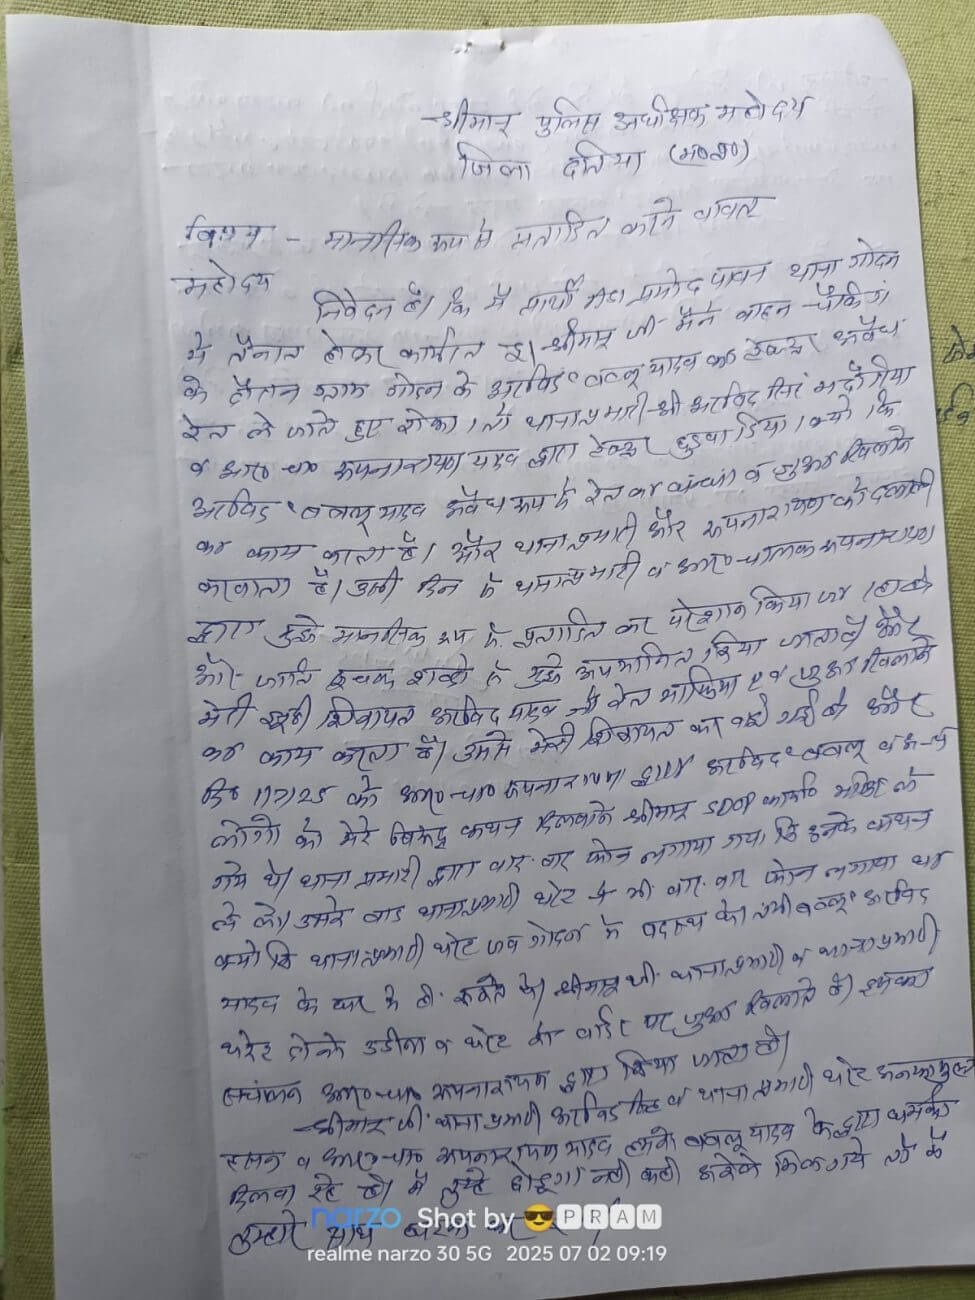 श्रीमान पुलिस अधीक्षक महोदय
जिला दतिया (म०प्र०)
विषय - मानसिक रूप से प्रताडित करने बावत
महोदय
निवेदन है। कि मैं प्रार्थी प्रमोद पावन थाना गोदन
में तैनात होकर कार्यरत हूं। श्रीमान जी मैंने वाहन चैकिंग
के दौरान ग्राम गोदन के अरविंद बबलू यादव का टेक्टर अवैध
रेत ले जाते हुए रोका। तो थाना प्रभारी श्री अरविंद सिंह भदौरिया
व आर० चा० रूपनारायण यादव द्वारा टेक्टर छुडवा दिया। क्यो कि
अरविंद बबलू यादव अवैध रूप से रेत का धंधा व जुआ खिलाने
का काम करता है। और थाना प्रभारी और रूपनारायण को दलाली
करवाता है। उसी दिन से थाना प्रभारी व आर० चालक रूपनारायण
द्वारा मुझे मानसिक रूप से प्रताडित कर परेशान किया जा
और जाति सूचक शब्दो से मुझे अपमानित किया जाता है और
मेरी झूठी शिकायत अरविंद यादव जो रेत माफिया एवं जुआ खिलाने
का काम करता है। उससे मेरी शिकायत करवाई गई है और
दि० 1/7/25 को आर० चा० रूपनारायण द्वारा अरविंद बबलू व
लोगो को मेरे विरूद्ध कथन दिलवाने श्रीमान SDOP कार्या० ले
गये थे। थाना प्रभारी द्वारा बार-बार फोन लगाया गया कि इनके कथन
ले लो। उसके बाद थाना प्रभारी थरेट से भी बार-बार फोन लगाया गया
क्यो कि थाना प्रभारी थरेट जब गोदन में पदस्थ थे। तभी बबलू अरविंद
यादव के घर में ही रूकते थे। श्रीमान जी थाना प्रभारी व थाना प्रभारी
थरेट दोनो उडीना व थरेट की बार्डर पर जुआ खिलाते है। इसका
संचालन आर० चा० रूपनारायण द्वारा किया जाता है।
श्रीमान जी थाना प्रभारी अरविंद सिंह व थाना प्रभारी थरेट
व आर० चा० रूपनारायण यादव बबलू यादव के द्वारा धमकी
दिलवा रहे है। मैं तुम्हे छोडूंगा नही कही अकेले मिल गये तो मैं
तुम्हारे साथ
narzo Shot by 😎 PRAM
realme narzo 30 5G 2025 07 02 09:19